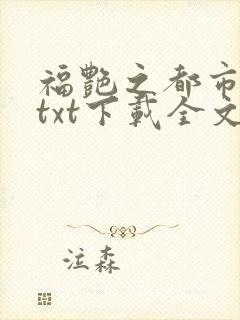 福艷之都市
txt下載全文
泣森